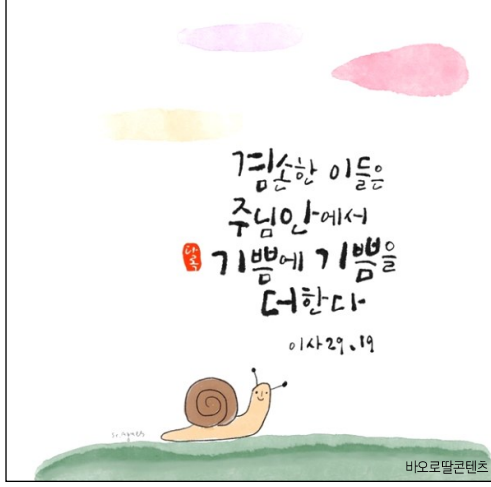 겸손한 이들은
주님안에서
기쁨에 기쁨을
더한다
이사29.19
바오로딸콘텐츠